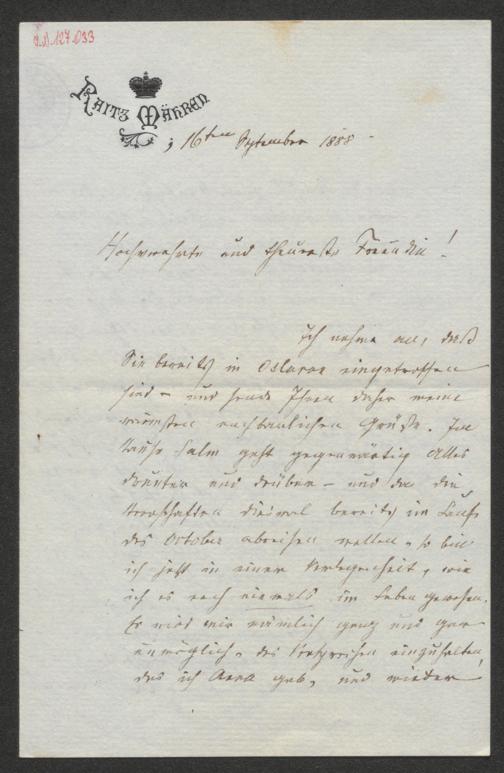 I.N. 127.033
RAITZ MÄHREN
, 16ten September 1888 -
Hochverehrte und theuerste Freundin!
Ich nehme an, daß
Sie bereits in Oslavan eingetroffen
sind - und sende Ihnen daher meine
wärmsten nachbarlichen Grüße. Im
Hause Salm geht gegenwärtig Alles
drunter und drüber - und da die
Herrschaften diesmal bereits im Laufe
des October abreisen wollen, so bin
ich jetzt in einer Verlegenheit, wie
ich es noch niemals im Leben gewesen.
Es wird mir nämlich ganz und gar
unmöglich, das Versprechen einzuhalten,
das ich Anna gab, und wieder